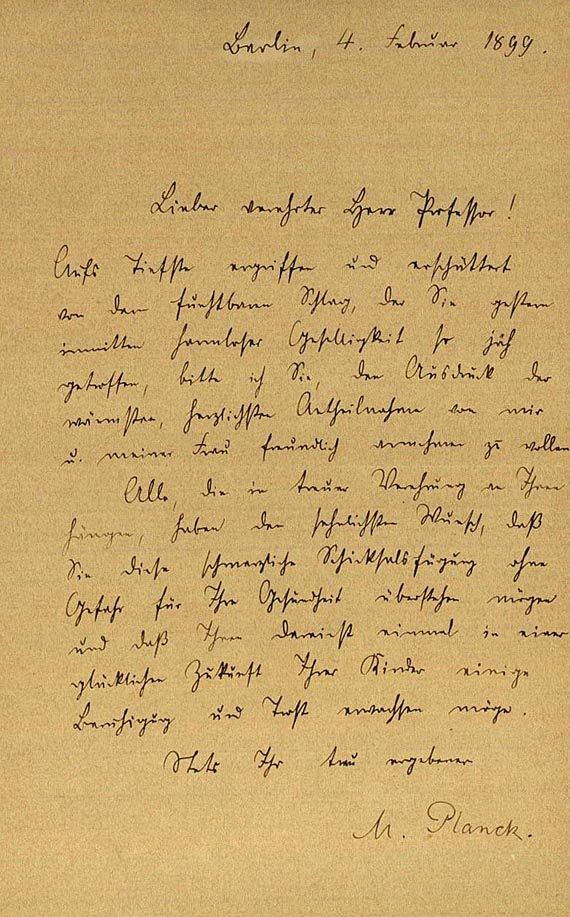 Berlin, 4. Februar 1899.
Lieber verehrter Herr Professor!
Aufs Tiefste ergriffen und erschüttert
von dem furchtbaren Schlag, der Sie gestern
inmitten harmloser Geselligkeit so jäh
getroffen, bitte ich Sie, den Ausdruck der
wärmsten, herzlichsten Antheilnahme von mir
u. meiner Frau freundlich annehmen zu wollen.
Alle, die in treuer Verehrung an Ihnen
hängen, haben den sehnlichsten Wunsch, daß
Sie diese schmerzliche Schicksalsfügung ohne
Gefahr für Ihre Gesundheit überstehen mögen
und daß Ihnen dereinst einmal in einer
glücklichen Zukunft Ihrer Kinder einige
Beruhigung und Trost erwachsen möge.
Stets Ihr treu ergebener
M. Planck.